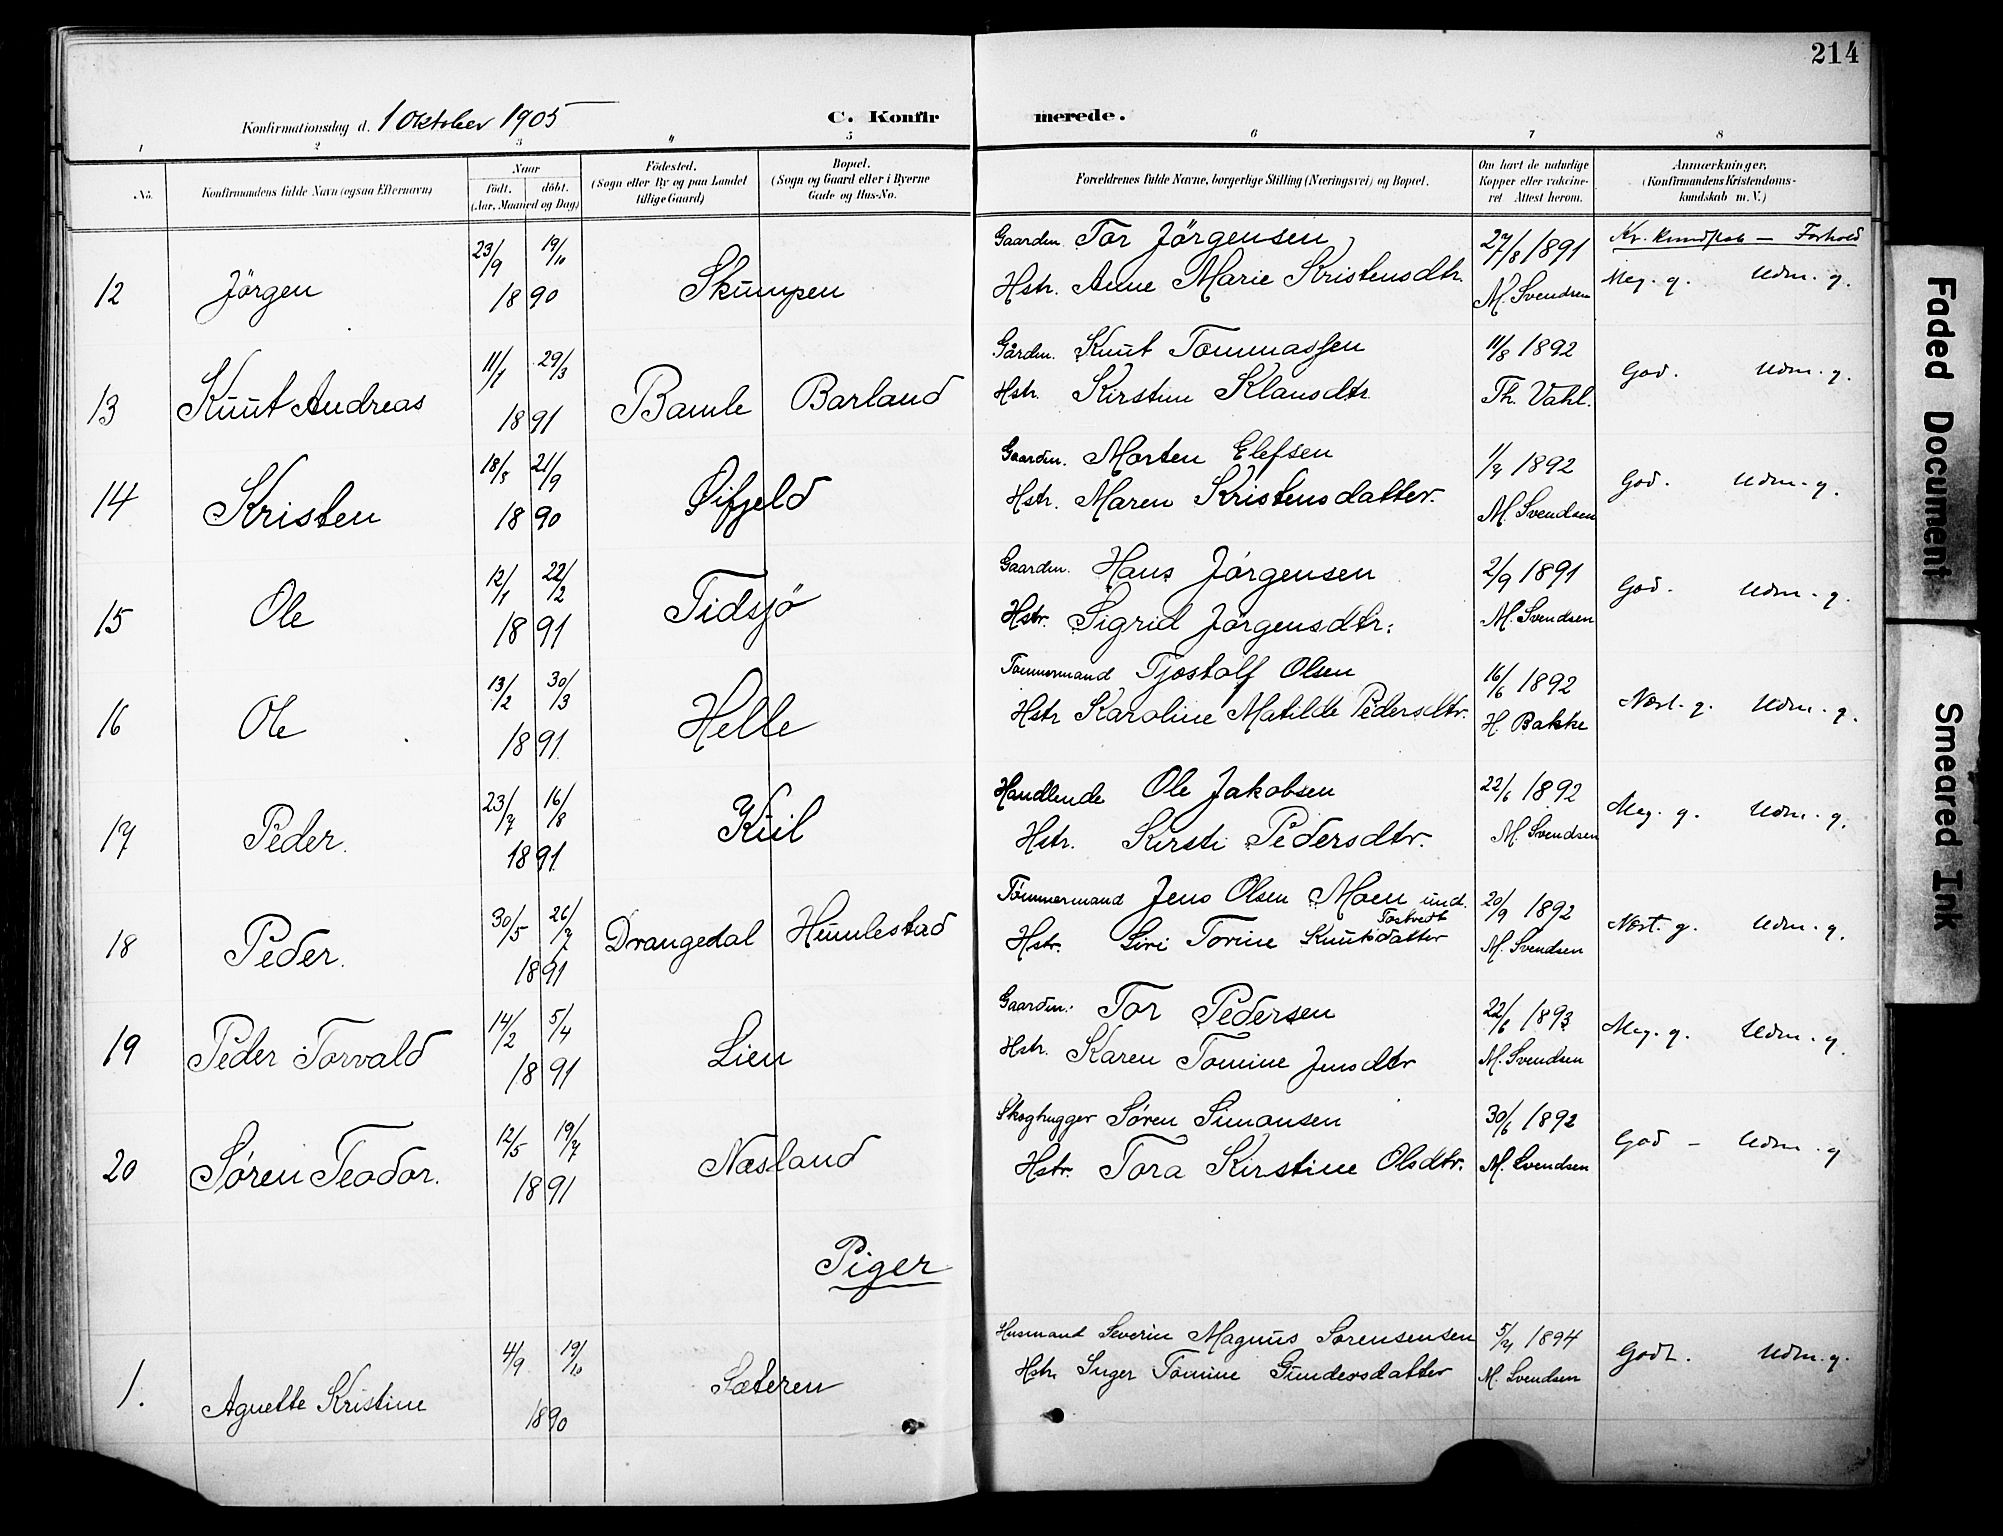 214
Konfirmationsdag d. 1 Oktober 1905 C. Konfirmerede.
1 2 3 4 5 6 7 8
No. Konfirmandens fulde Navn (ogsaa Efternavn) Naar födt. döbt. (Aar, Maaned og Dag) Födested. (Sogn eller By og paa Landet tillige Gaard) Bopæl. (Sogn og Gaard eller i Byerne Gade og Hus-No. Forældrenes fulde Navne, borgerlige Stilling (Næringsvei) og Bopæl. Om havt de naturlige Kopper eller vakcineret Attest herom. Anmærkninger, (Konfirmandens Kristendomskundskab m. V.)
Kr. kundskab — Forhold
12 Jörgen 23/9 19/10 1890 Skumpen Gaardm. Tor Jörgensen 27/8 1891 Meg. g. Udm. g.
Hstr. Anne Marie Kristensdtr. M. Svendsen
13 Knut Andreas 11/1 29/3 1891 Bamle Barland Gårdm. Knut Tommassen 11/8 1892 God. Udm. g.
Hstr. Kirstine Klausdtr Th. Vahl.
14 Kristen 18/3 21/9 1890 Øifjeld Gaardm. Morten Elefsen 1/9 1892 God. Udm. g.
Hstr. Maren Kristensdatter. M. Svendsen
15 Ole 12/1 22/2 1891 Tidsjö Gaardm. Hans Jörgensen 2/9 1891 God. Udm. g.
Hstr. Sigrid Jörgensdtr. M. Svendsen
16 Ole 13/2 30/3 1891 Helle Tømmermand Tjostolf Olsen 16/6 1892 Nost. g. Udm. g.
Hstr Karoline Matilde Pedersdtr. H. Bakke
17 Peder. 23/7 16/8 1891 Kiil Handlende Ole Jakobsen 22/6 1892 Meg. g. Udm. g.
Hstr. Kirsti Pedersdtr. M. Svendsen
18 Peder. 30/5 26/7 1891 Drangedal Humlestad Tömmermand Jens Olsen Moen und. Tostvedt 20/9 1892 Nost. g. Udm. g.
Hstr. Siri Torine Knutsdatter M. Svendsen
19 Peder Torvald 14/2 5/4 1891 Lien Gaardm. Tor Pedersen 22/6 1893 Meg. g. Udm. g.
Hstr. Karen Tomine Jensdtr M. Svendsen
20 Søren Teodor. 12/5 19/7 1891 Næsland Skoghugger Søren Simonsen 30/6 1892 God — Udm. g
Hstr. Tora Kirstine Olsdtr. M. Svendsen
Piger
1. Agnette Kristine 4/9 19/10 1890 Sæteren Husmand Severin Magnus Sørensensen 5/9 1894 Godt. Udm. g.
Hstr. Inger Tomine Gundersdatter M. Svendsen
Faded Document
Smeared Ink